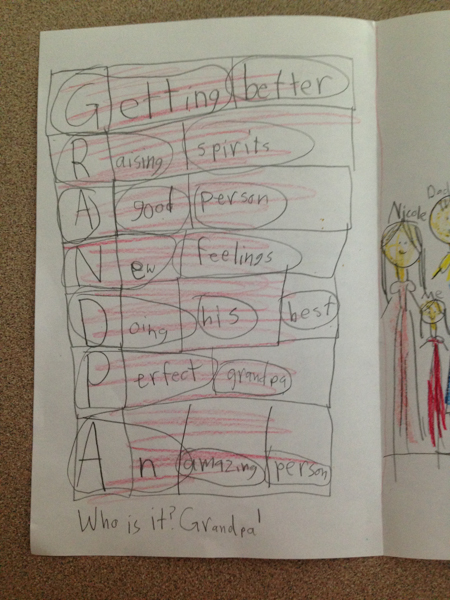 Getting better
Raising spirits
A good person
New feelings
Doing his best
Perfect grandpa
An amazing person
Who is it? Grandpa!
Nicole
Dad
Me